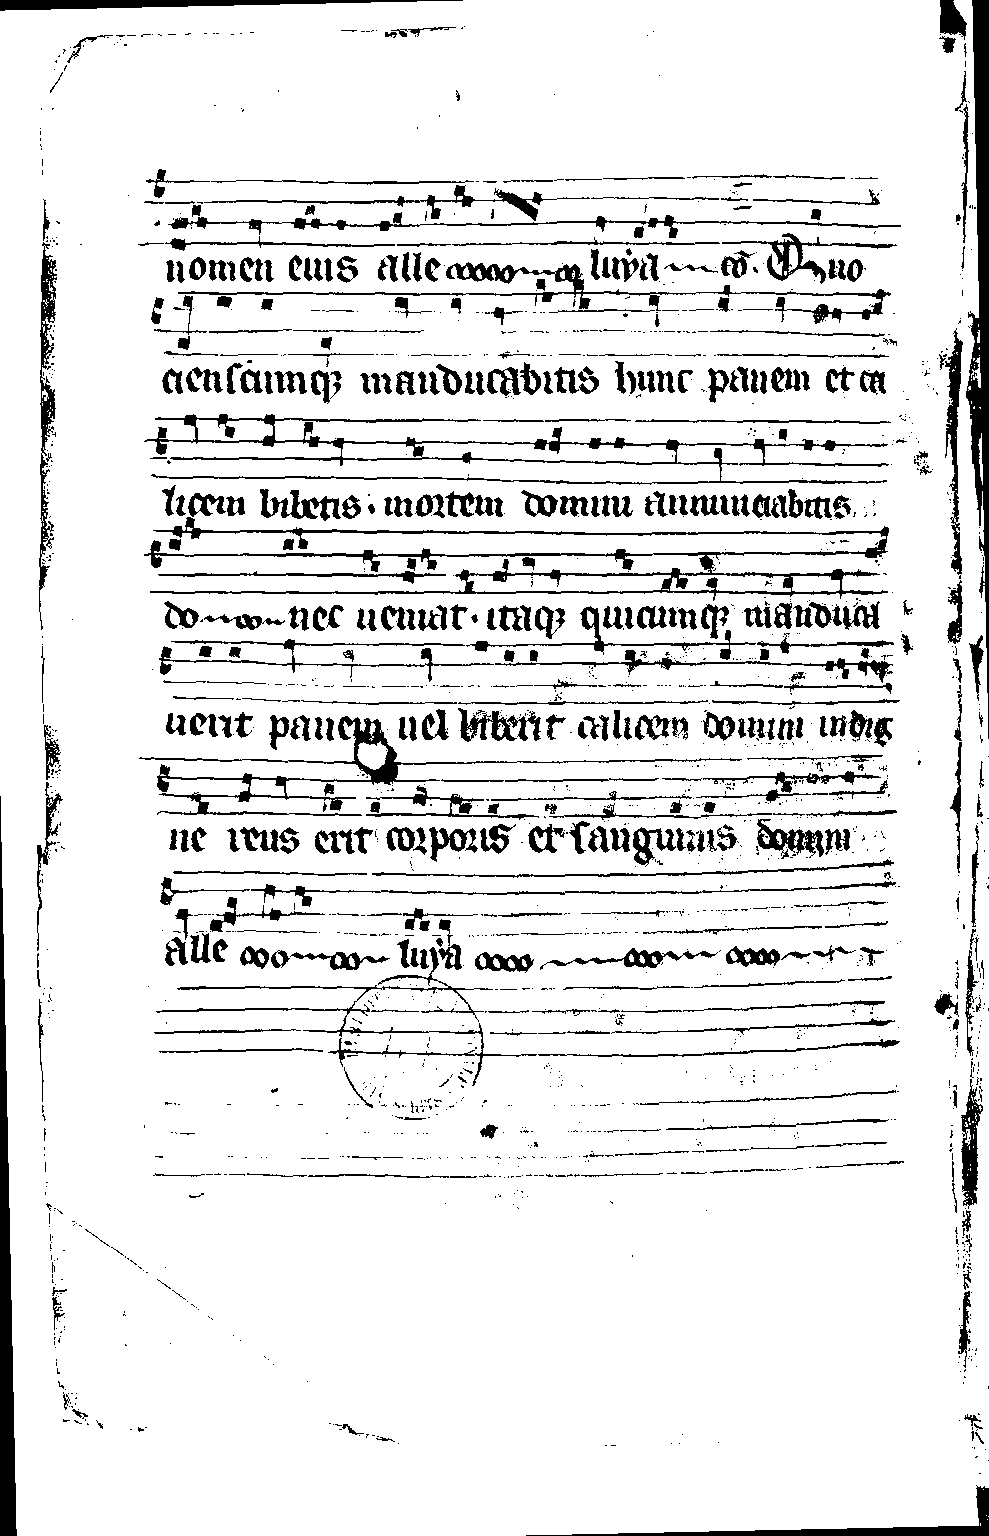 nomen eius alle luya cõ. Quo
cienscumqꝫ manducabitis hunc panem et ca
licem bibetis · mortem domini annunciabitis
do nec ueniat · itaqꝫ quicumqꝫ manduca
uerit panem uel biberit calicem domini indig
ne reus erit corporis et sanguinis domini
alle luya